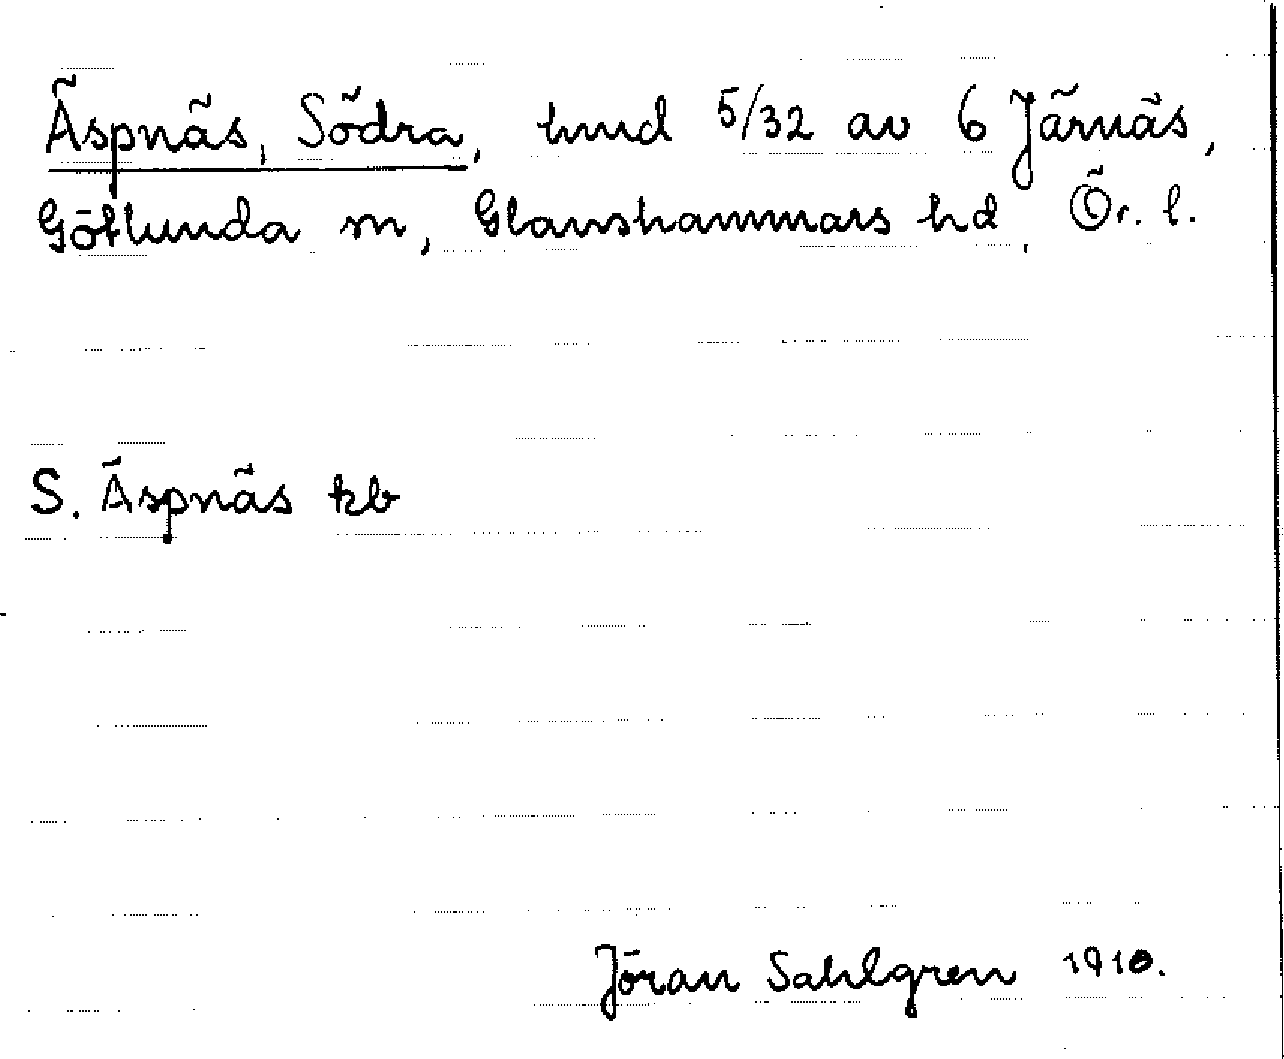 Äspnäs, Södra, hmd 5/32 av 6 Järnäs,
Götlunda sn, Glanshammars hd, Ör. l.
S. Äspnäs kb
Jöran Sahlgren 1910.